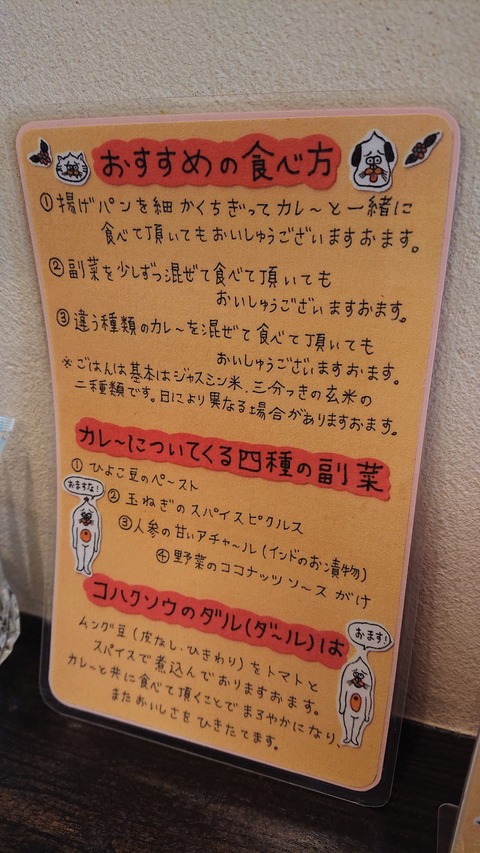 おすすめの食べ方
①揚げパンを細かくちぎってカレ〜と一緒に
食べて頂いてもおいしゅうございますおます。
②副菜を少しずつ混ぜて食べて頂いても
おいしゅうございますおます。
③違う種類のカレ〜を混ぜて食べて頂いても
おいしゅうございますおます。
※ごはんは基本はジャスミン米、三分つきの玄米の
二種類です。日により異なる場合がありますおます。
カレ〜についてくる四種の副菜
①ひよこ豆のペースト
おますな!
②玉ねぎのスパイスピクルス
③人参の甘いアチャ〜ル(インドのお漬物)
④野菜のココナッツソ〜スがけ
コハクソウのダル(ダ〜ル)は
おます!
ムング豆(皮なし・ひきわり)をトマトと
スパイスで煮込んでおりますおます。
カレ〜と共に食べて頂くことでまろやかになり、
またおいしさをひきたてます。